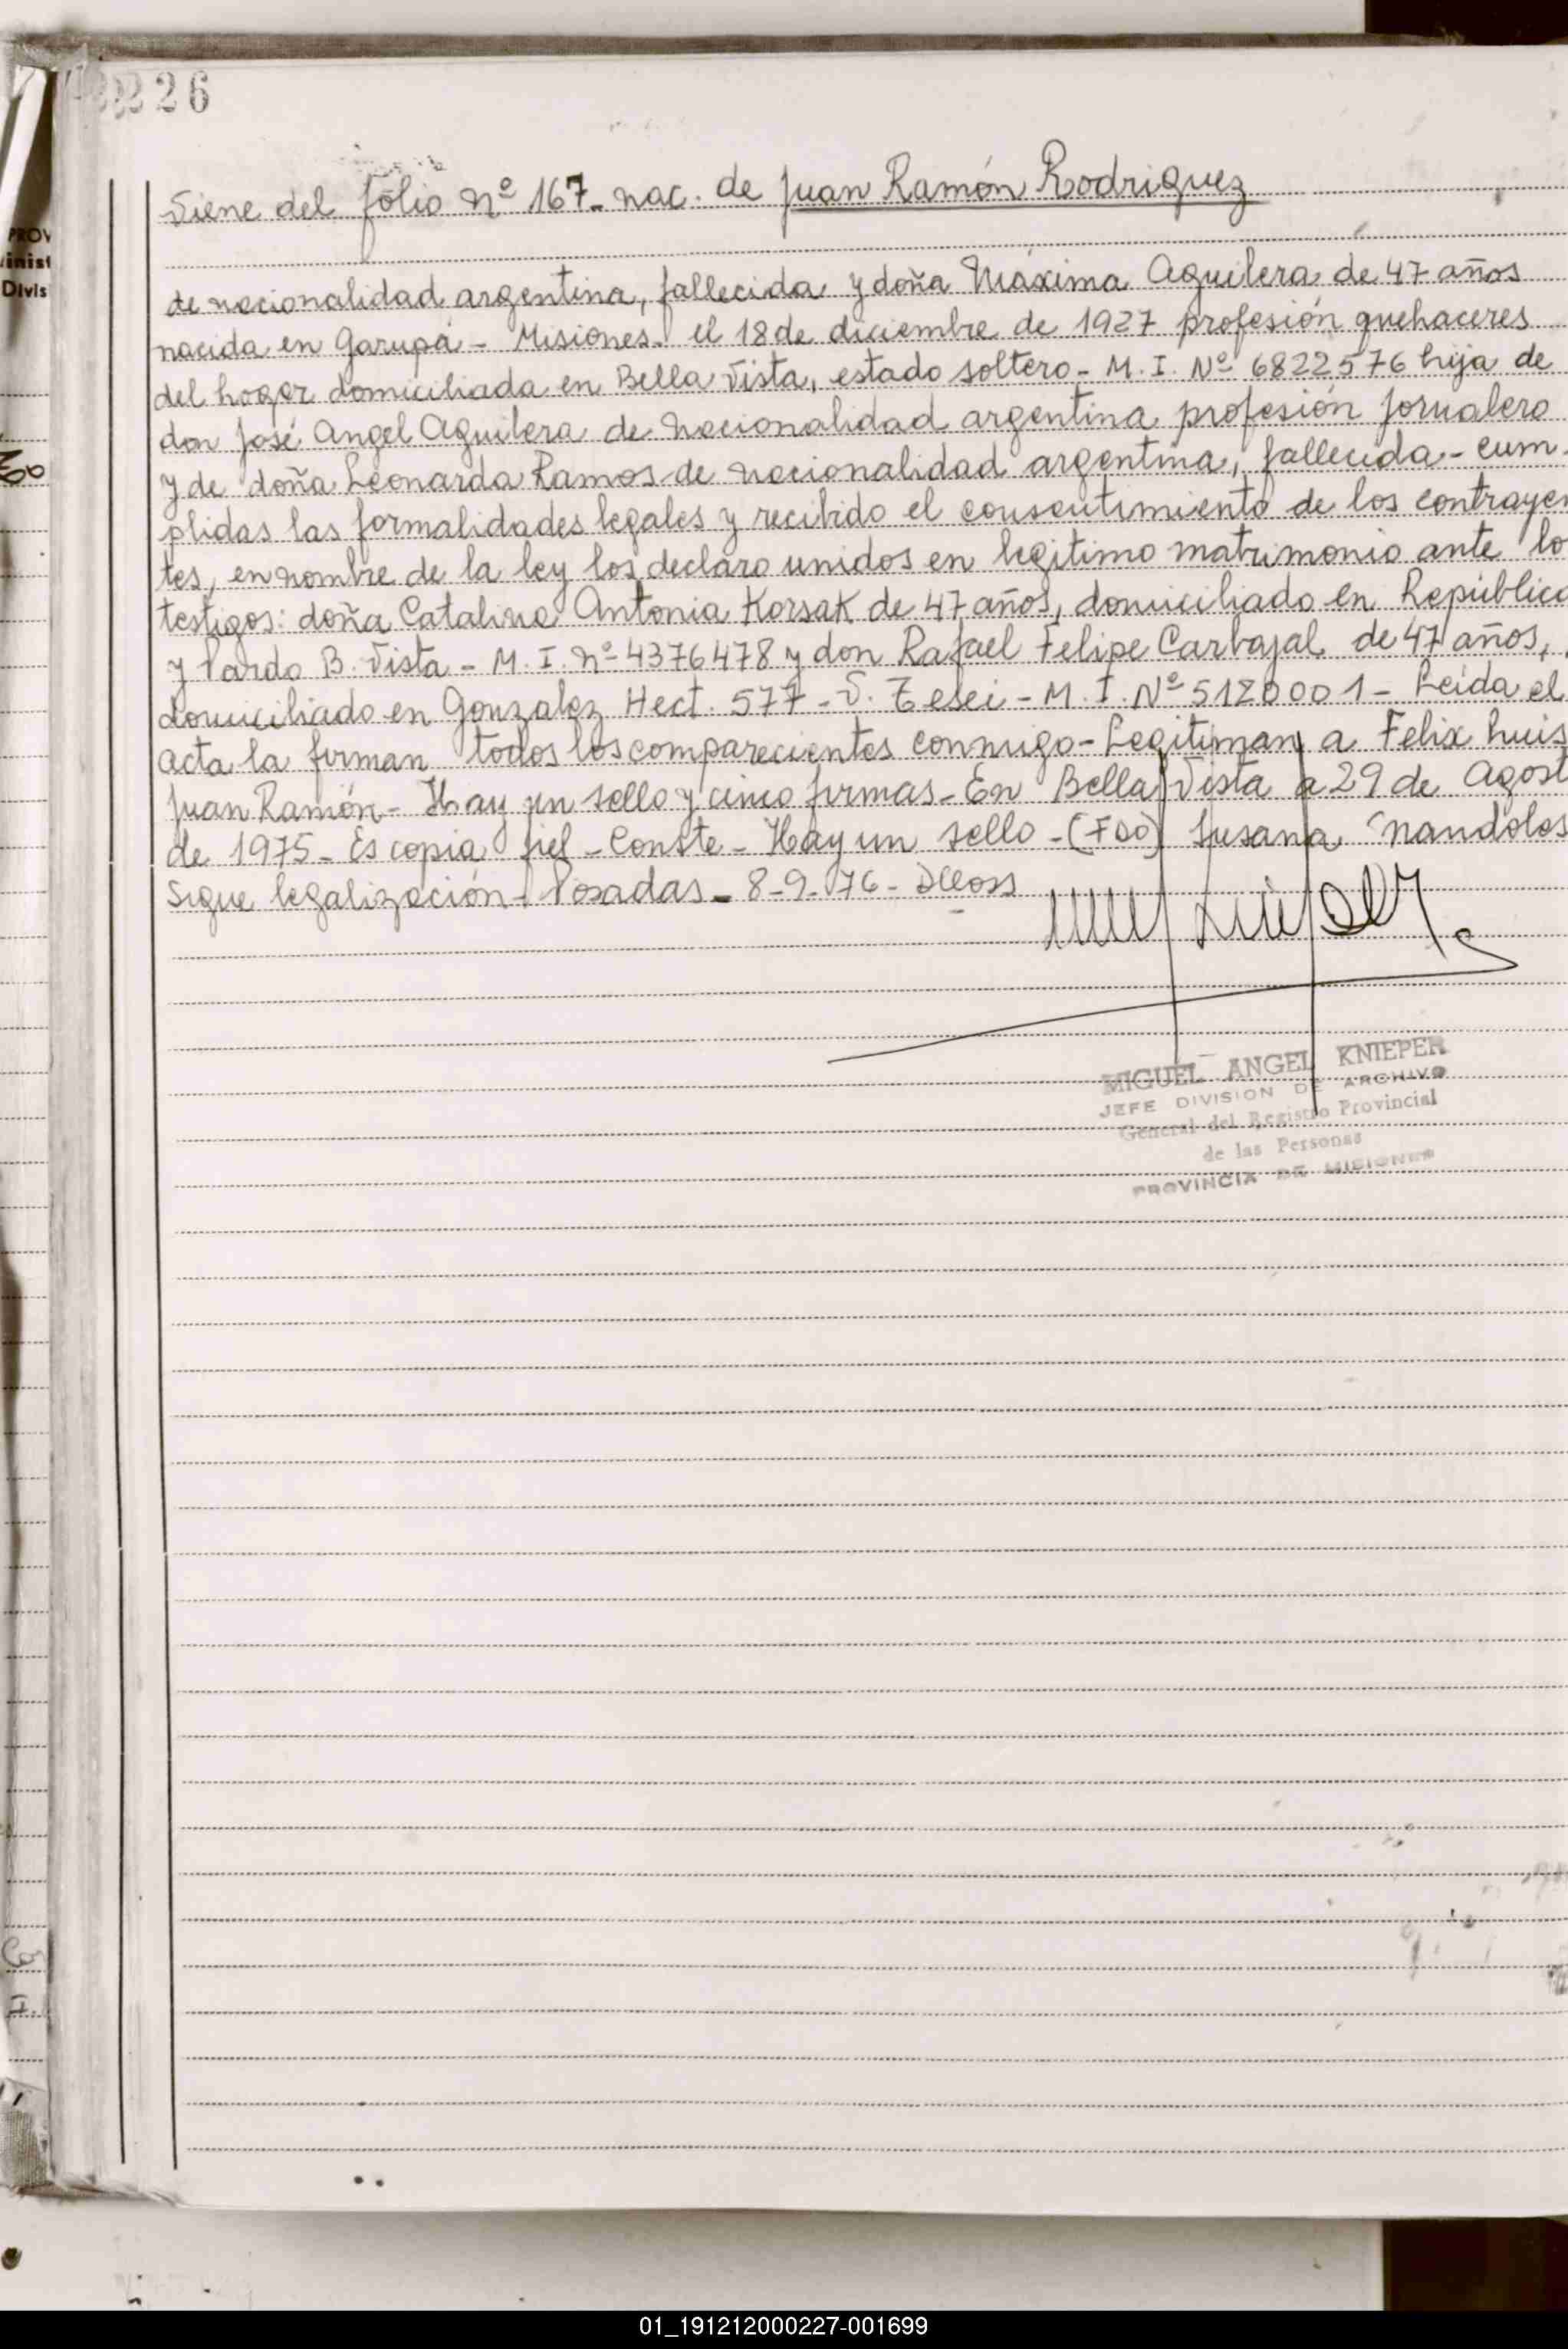 226
Viene del folio Nº 167- nac. de Juan Ramón Rodriguez
PROV
inist
Divis
de nacionalidad argentina, fallecida y doña Máxima Aguilera de 47 años
nacida en Garupá - Misiones - el 18 de diciembre de 1927 profesión quehaceres
del hogar domiciliada en Bella Vista, estado soltero - M. I. Nº 6822576 hija de
don José Angel Aguilera de nacionalidad argentina profesión jornalero
y de doña Leonarda Ramos de nacionalidad argentina, fallecida - cum-
plidas las formalidades legales y recibido el consentimiento de los contrayen
tes, en nombre de la ley los declaro unidos en legitimo matrimonio ante lo
testigos: doña Catalina Antonia Korsak de 47 años, domiciliado en República
y Pardo B. Vista - M. I. nº 4376478 y don Rafael Felipe Carbajal de 47 años,
domiciliado en Gonzalez Hect. 577 - V. Tesei - M. I. Nº 5120001 - Leída el
acta la firman todos los comparecientes conmigo - Legitiman a Felix Luis
Juan Ramón - Hay un sello y cinco firmas - En Bella Vista a 29 de Agost
de 1975 - Es copia fiel - Conste - Hay un sello - (FDO) Susana Nandolos
Sigue legalización - Posadas - 8-9-76 -
MIGUEL ANGEL KNIEPER
JEFE DIVISION DE ARCHIVO
General del Registro Provincial
de las Personas
PROVINCIA DE MISIONES
Co
I.
01_191212000227-001699